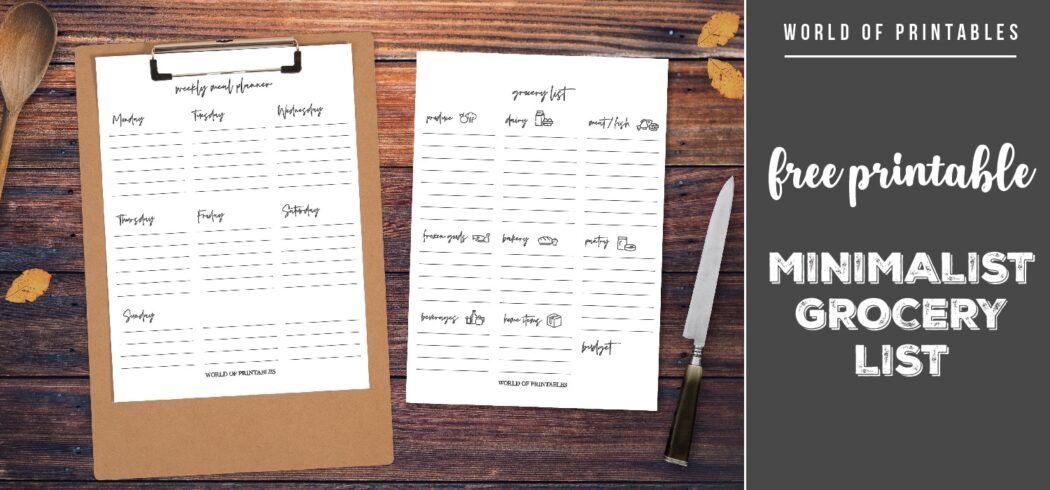 weekly meal planner
Monday Tuesday Wednesday
Thursday Friday Saturday
Sunday
WORLD OF PRINTABLES
grocery list
produce dairy meat / fish
frozen goods bakery pantry
beverages home items
budget
WORLD OF PRINTABLES
WORLD OF PRINTABLES
free printable
MINIMALIST
GROCERY
LIST